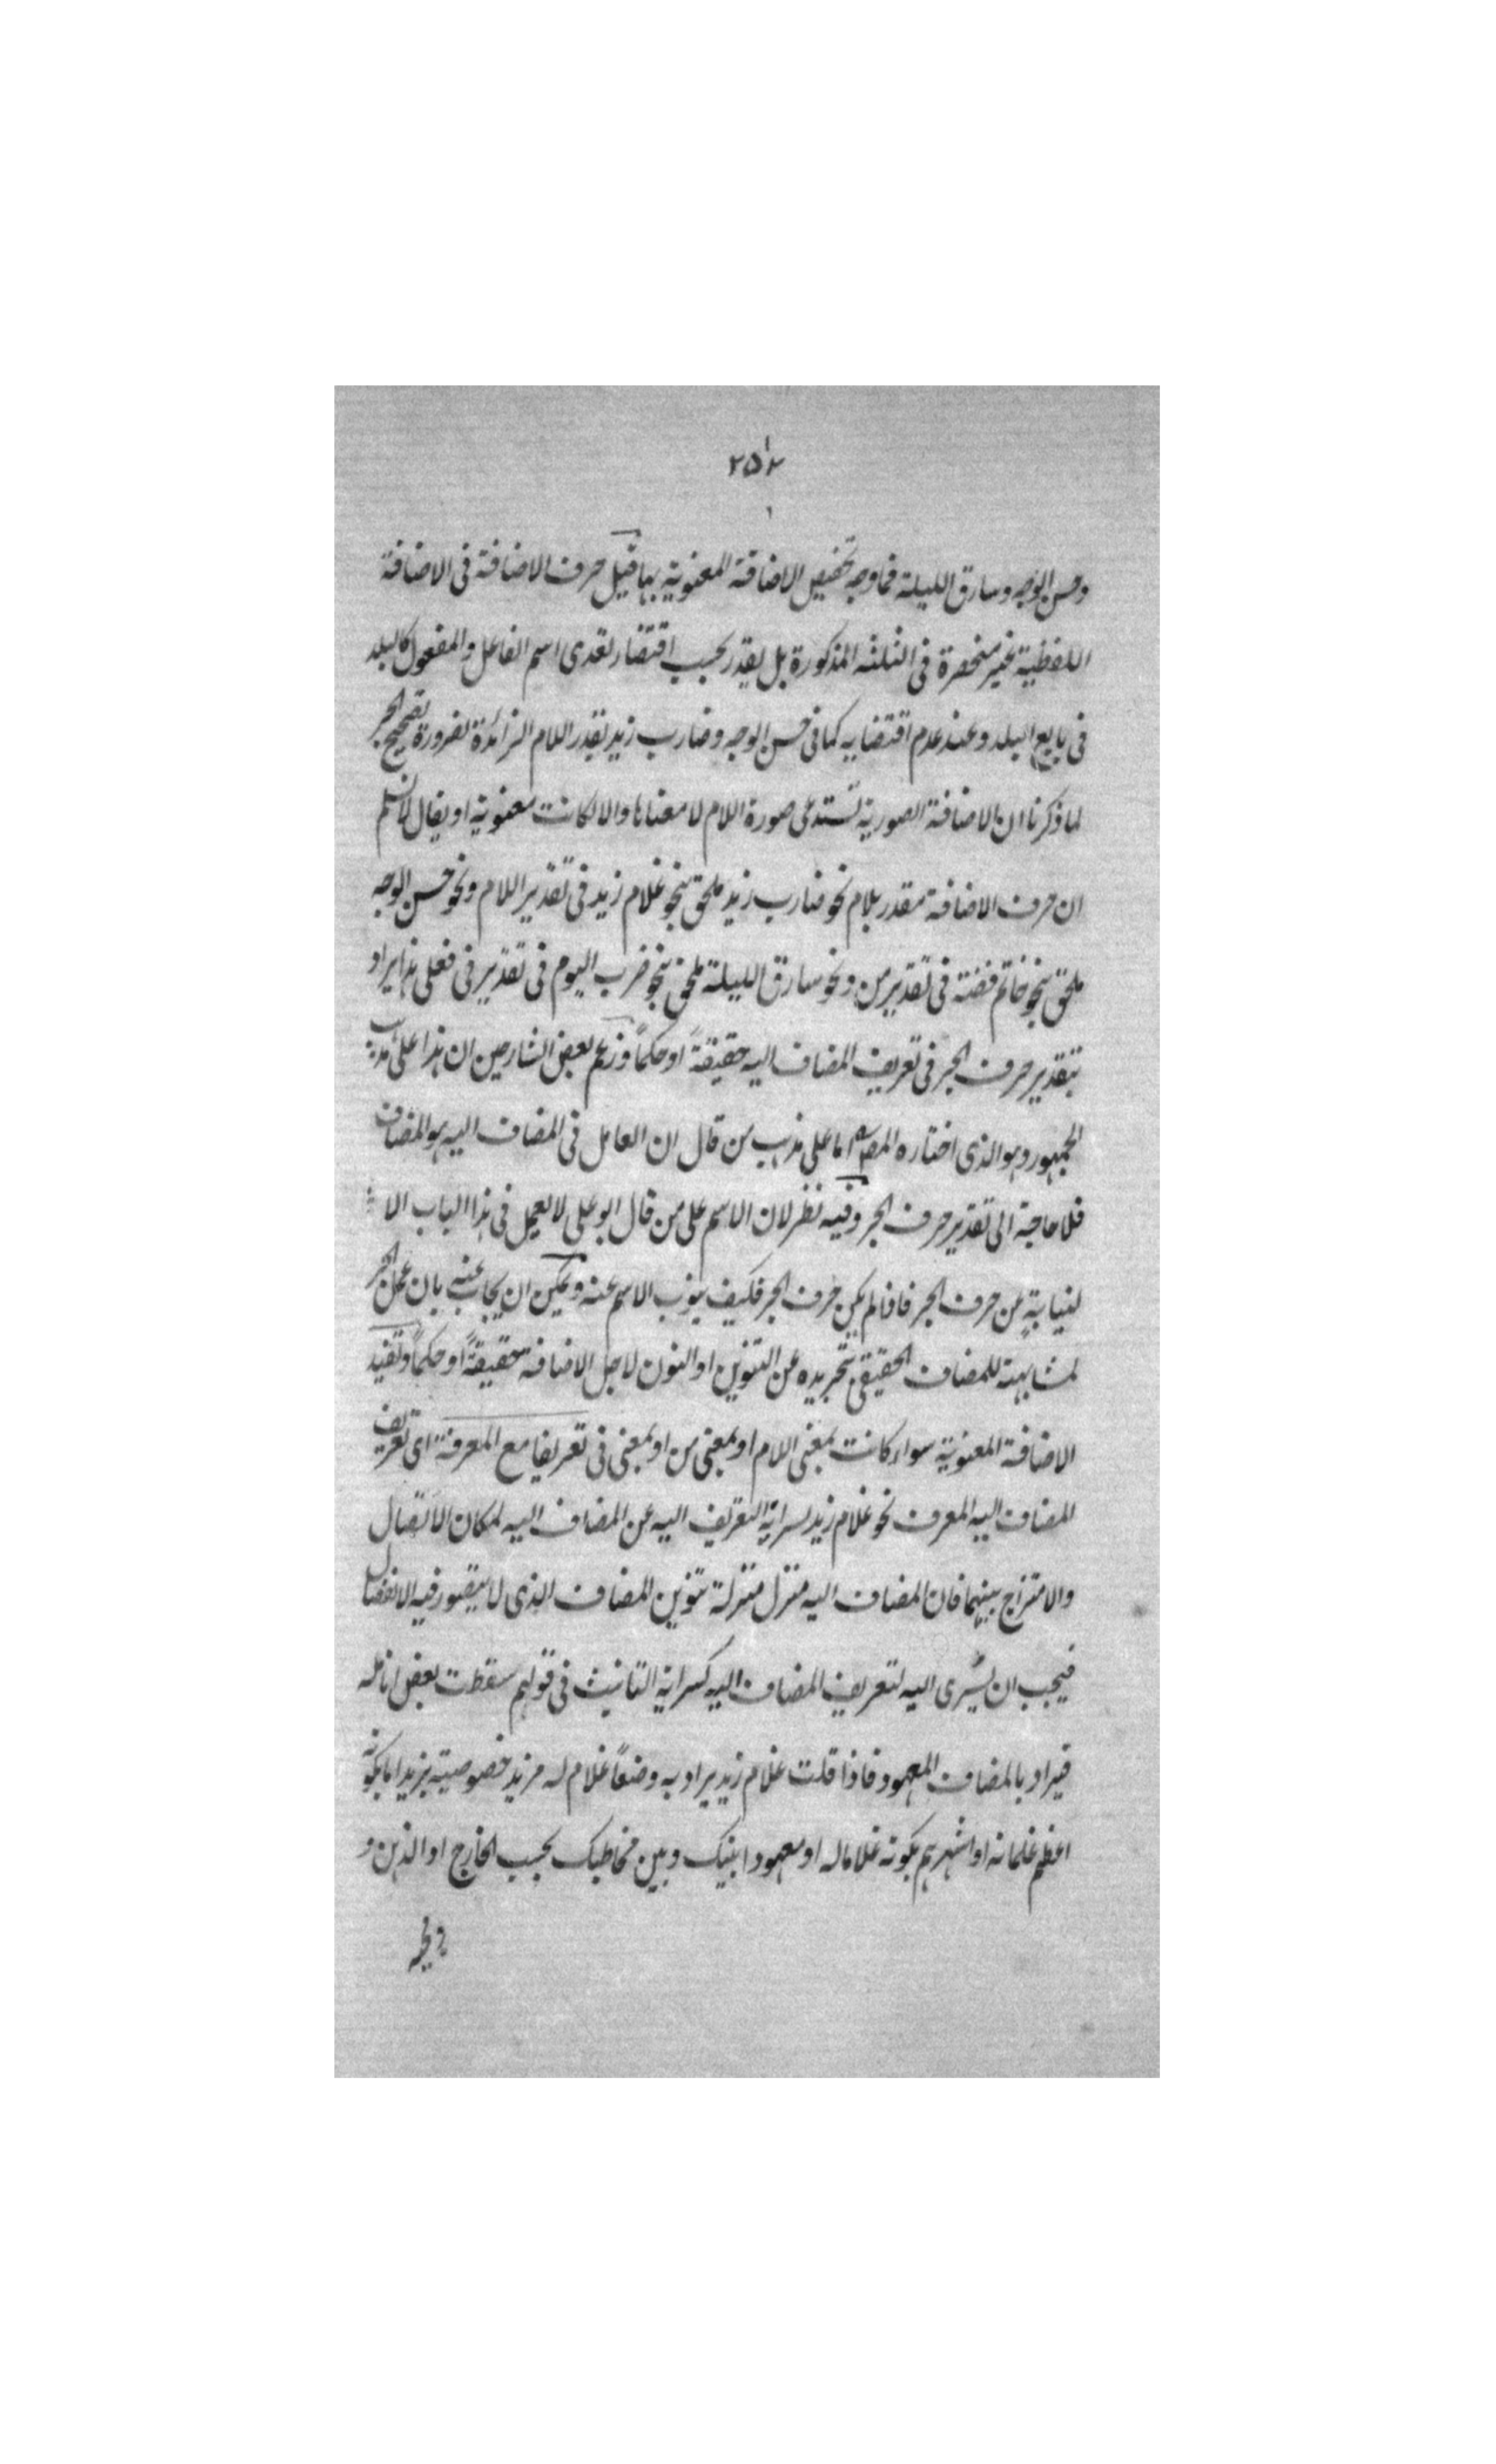 ٢٥٢
وحسن الوجه وسارق الليلة فما وجه تخصيص الاضافة المعنوية بها قيل حرف الاضافة فى الاضافة
اللفظية غير منحصرة فى الثلثة المذكورة بل يقدر بحسب اقتضاء تعدى اسم الفاعل والمفعول كالبلد
فى بايع البلد وعند عدم اقتضايه كما فى حسن الوجه وضارب زيد يقدر اللام الزائدة لضرورة تصحيح الجر
لما ذكرنا ان الاضافة الصورية تستدعى صورة اللام لا معناها والا لكانت معنوية او يقال لا نسلم
ان حرف الاضافة مقدر بلام نحو ضارب زيد ملحق بنحو غلام زيد فى تقدير اللام ونحو حسن الوجه
ملحق بنحو خاتم فضة فى تقدير من ونحو سارق الليلة ملحق بنحو ضرب اليوم فى تقدير فى فعلى هذا يراد
بتقدير حرف الجر فى تعريف المضاف اليه حقيقةً او حكماً وزعم بعض الشارحين ان هذا على مذهب
الجمهور وهو الذى اختاره المص اما على مذهب من قال ان العامل فى المضاف اليه هو المضاف
فلا حاجة الى تقدير حرف الجر وفيه نظر لان الاسم على من قال ابو على لا يعمل فى هذا الباب الا
لنيابةٍ عن حرف الجر فاذا لم يكن حرف الجر فكيف ينوب الاسم عنه ويمكن ان يجاب عنه بان عمل الجر
لمشابهة للمضاف الحقيقى بتجريده عن التنوين او النون لاجل الاضافة حقيقةً او حكماً وتفيد
الاضافة المعنوية سواء كانت بمعنى اللام او بمعنى من او بمعنى فى تعريفا مع المعرفة اى تعريف
المضاف اليه المعرف نحو غلام زيد لسراية التعريف اليه عن المضاف اليه لمكان الاتصال
والامتزاج بينهما فان المضاف اليه منزل منزلة تنوين المضاف الذى لا يتصور فيه الانفصال
فيجب ان يسرى اليه لتعريف المضاف اليه كسراية التانيث فى قولهم سقطت بعض انامله
فيراد بالمضاف المعهود فاذا قلت غلام زيد يراد به وضعاً غلام له مزيد خصوصية بزيد اما بكونه
اعظم غلمانه او اشهرهم بكونه غلاما له او معهودا بينك وبين مخاطبك بحسب الخارج او الذهن و